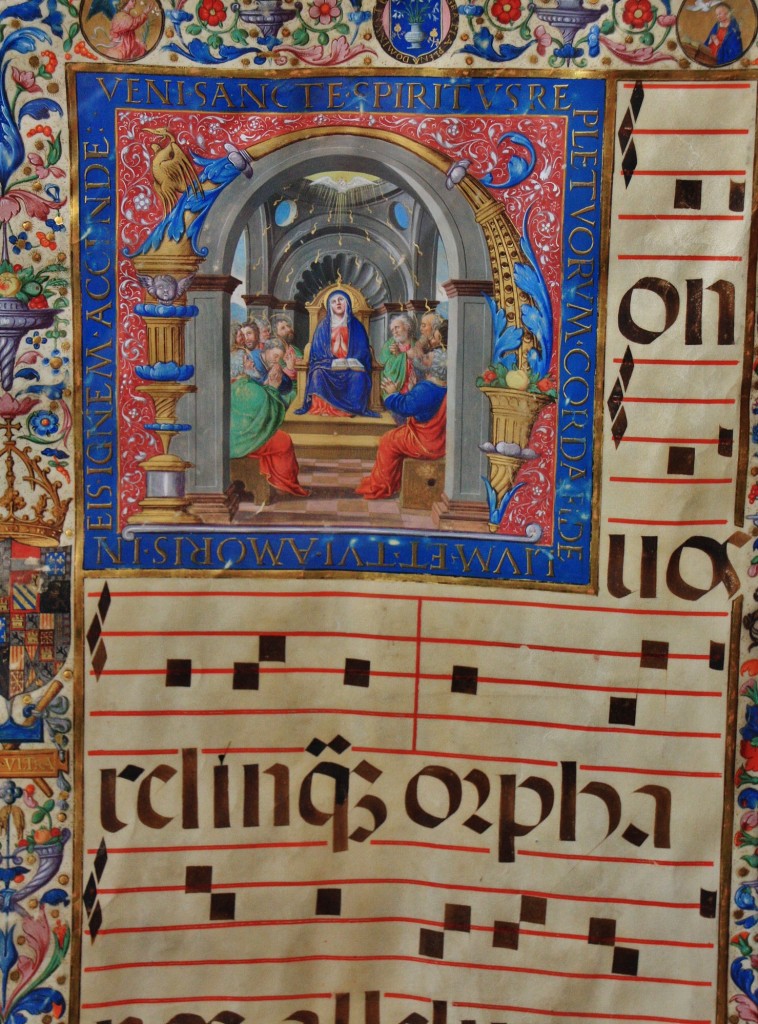 VENI·SANCTE·SPIRITVS RE
PLETVORVM·CORDA·FIDE
LIVM·ET·TVI·AMORIS·IN
EIS IGNEM ACCENDE:
on
uos
relinq̈s orpha
nos allelu